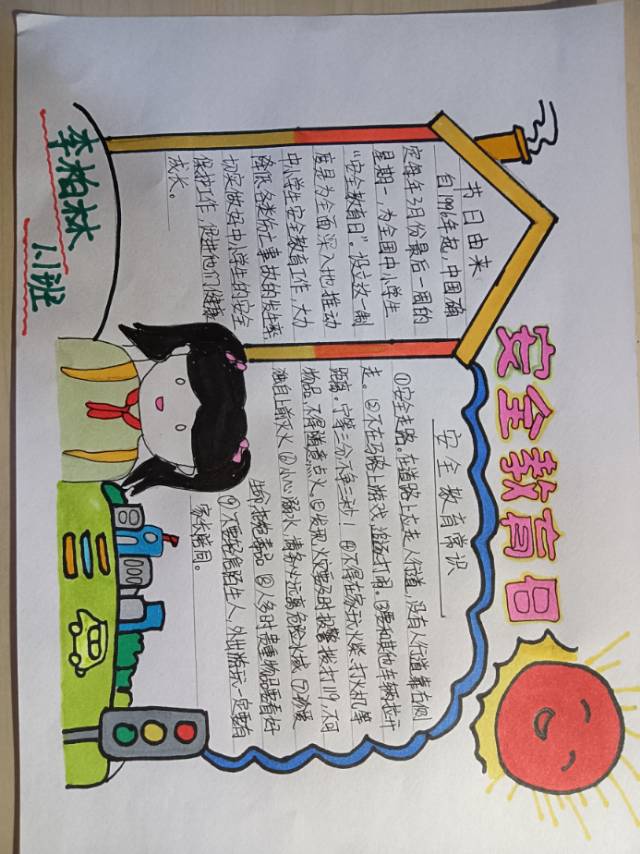 安全教育日
节日由来
自1996年起,中国确
定每年3月份最后一周的
星期一,为全国中小学生
“安全教育日”。设立这一制
度是为全面深入地推动
中小学生安全教育工作,大力
降低各类伤亡事故的发生率,
切实做好中小学生的安全
保护工作,促进他们健康
成长。
安全教育常识
①安全走路。在道路上应走人行道,没有人行道靠右侧
走。②不在马路上游戏,追逐打闹。③要和其他车辆拉开
距离。宁等三分,不争三秒!④不得在家玩火柴、打火机等
物品,不得随意点火。⑤发现火灾要及时报警拨打119,不可
独自上前灭火⑥小心溺水,请务必远离危险水域⑦珍爱
生命拒绝毒品⑧人多时贵重物品要看好
⑨不要轻信陌生人,外出游玩一定要有
家长陪同。
李柏林
1.1班